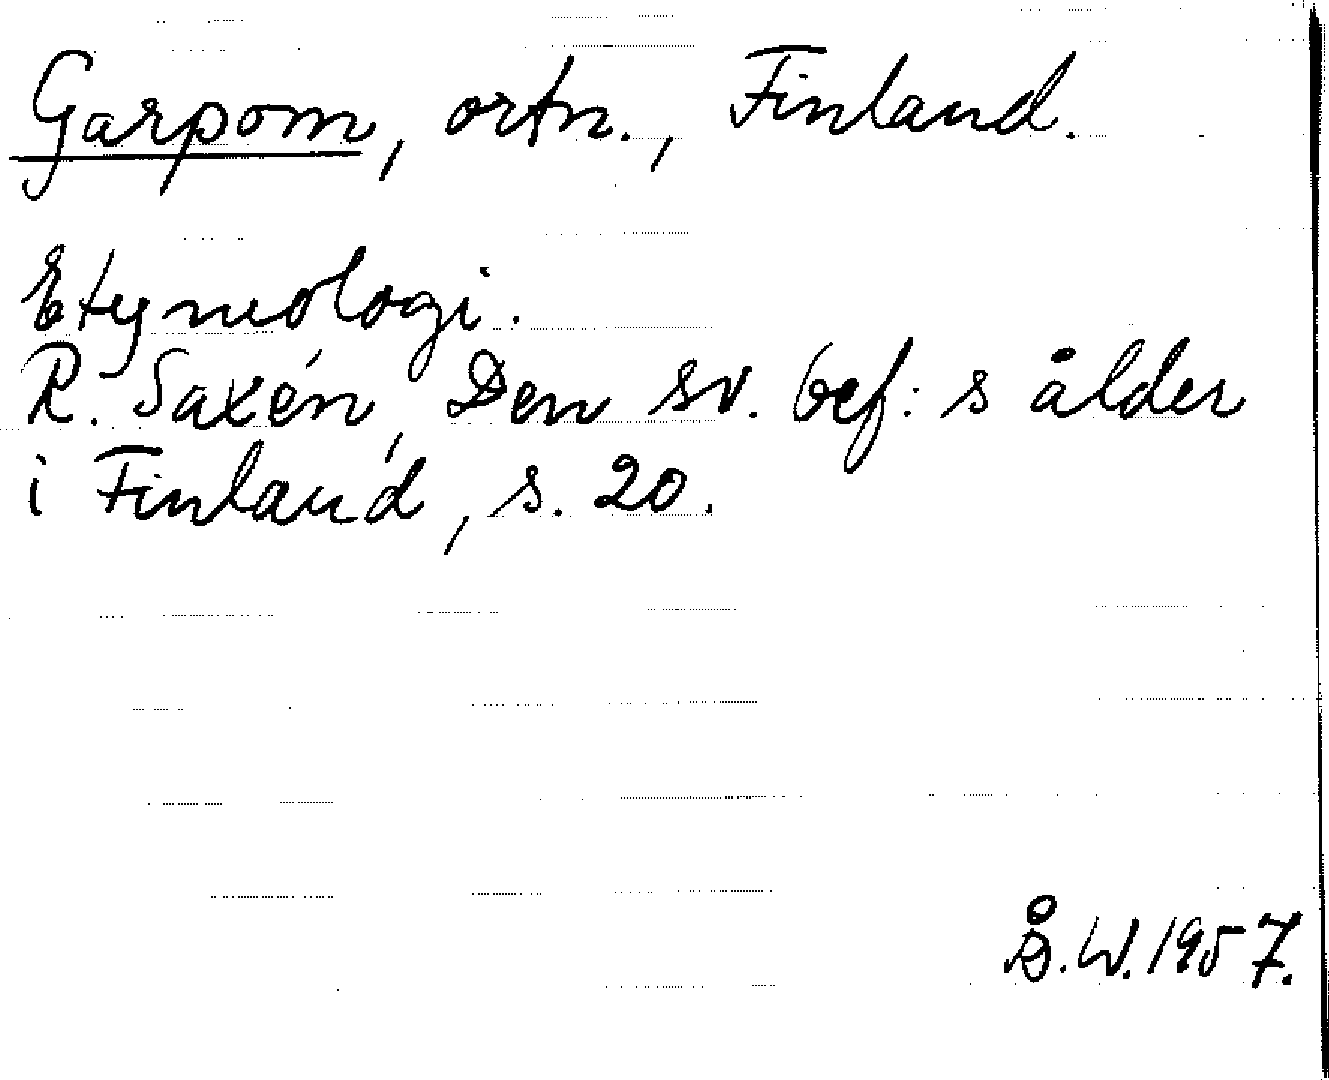 Garpom, ortn., Finland.
Etymologi.
R. Saxén, Den sv. bef:s ålder
i Finland, s. 20.
Å.W. 1957.